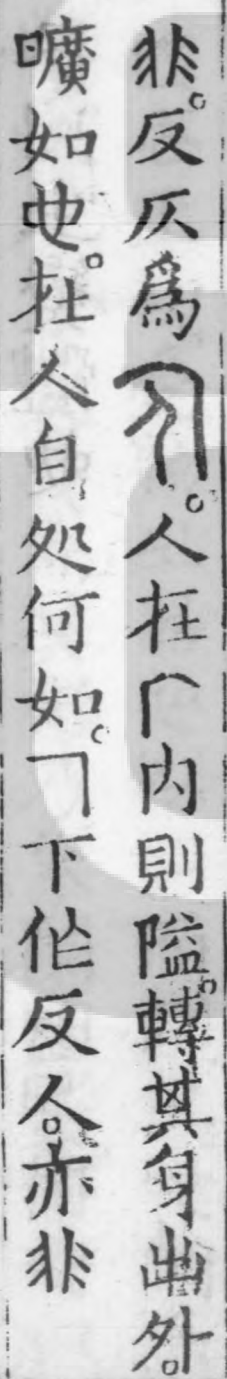 非。反仄爲。人在厂内則隘。轉其身出外。
曠如也。在人自処何如。㇕下作反人。亦非